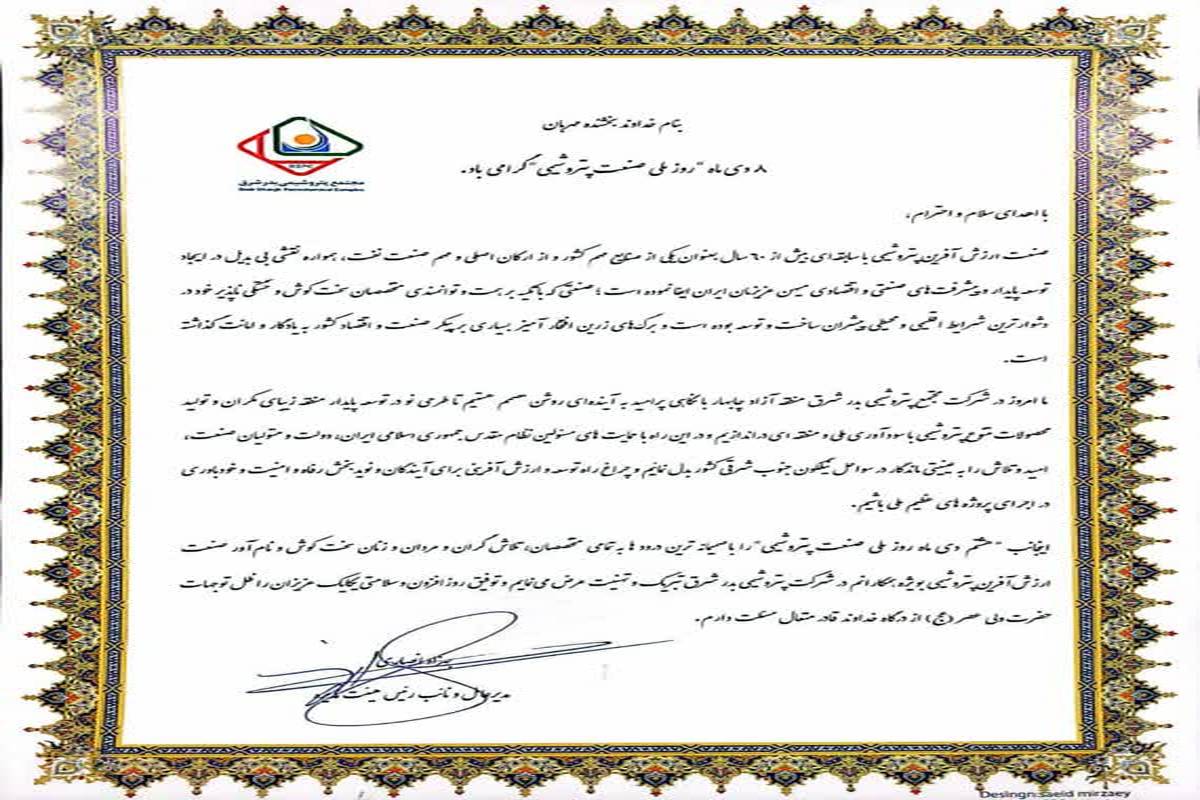 بنام خداوند بخشنده مهربان
۸ دی ماه "روز ملی صنعت پتروشیمی" گرامی باد.
مجتمع پتروشیمی بدر شرق
Badr Shargh Petrochemical Complex
با اهدای سلام و احترام،
صنعت ارزش آفرین پتروشیمی با سابقه‌ای بیش از ۶۰ سال بعنوان یکی از صنایع مهم کشور و از ارکان اصلی و مهم صنعت نفت، همواره نقشی بی بدیل در ایجاد
توسعه پایدار و پیشرفت‌های صنعتی و اقتصادی میهن عزیزمان ایران ایفا نموده است؛ صنعتی که با تکیه بر همت و توانمندی متخصصان سخت کوش و خستگی ناپذیر خود در
دشوارترین شرایط اقلیمی و محیطی پیشران ساخت و توسعه بوده است و برگ‌های زرین افتخار آمیز بسیاری بر پیکر صنعت و اقتصاد کشور به یادگار و امانت گذاشته
است.
ما امروز در شرکت مجتمع پتروشیمی بدر شرق منطقه آزاد چابهار با نگاهی پرامید به آینده‌ای روشن مصمم هستیم تا طرحی نو در توسعه پایدار منطقه زیبای مکران و تولید
محصولات متنوع پتروشیمی با سودآوری ملی و منطقه ای دراندازیم و در این راه با حمایت های مسئولین نظام مقدس جمهوری اسلامی ایران، دولت و متولیان صنعت،
امید و تلاش را به عینیتی ماندگار در سواحل نیلگون جنوب شرقی کشور بدل نمایم و چراغ راه توسعه و ارزش آفرینی برای آیندگان و نوید بخش رفاه و امنیت و خودباوری
در اجرای پروژه های عظیم ملی باشیم.
اینجانب "هشتم دی ماه روز ملی صنعت پتروشیمی" را با صمیمانه ترین درودها به تمامی متخصصان، تلاش گران و مردان و زنان سخت کوش و نام آور صنعت
ارزش آفرین پتروشیمی بویژه همکارانم در شرکت پتروشیمی بدر شرق تبریک و تهنیت عرض می‌نمایم و توفیق روزافزون و سلامتی یکایک عزیزان را ظل توجهات
حضرت ولی عصر (عج) از درگاه خداوند قادر متعال مسئلت دارم.
انصاری
مدیرعامل و نائب رئیس هیئت مدیره
Desingn:saeid mirzaey